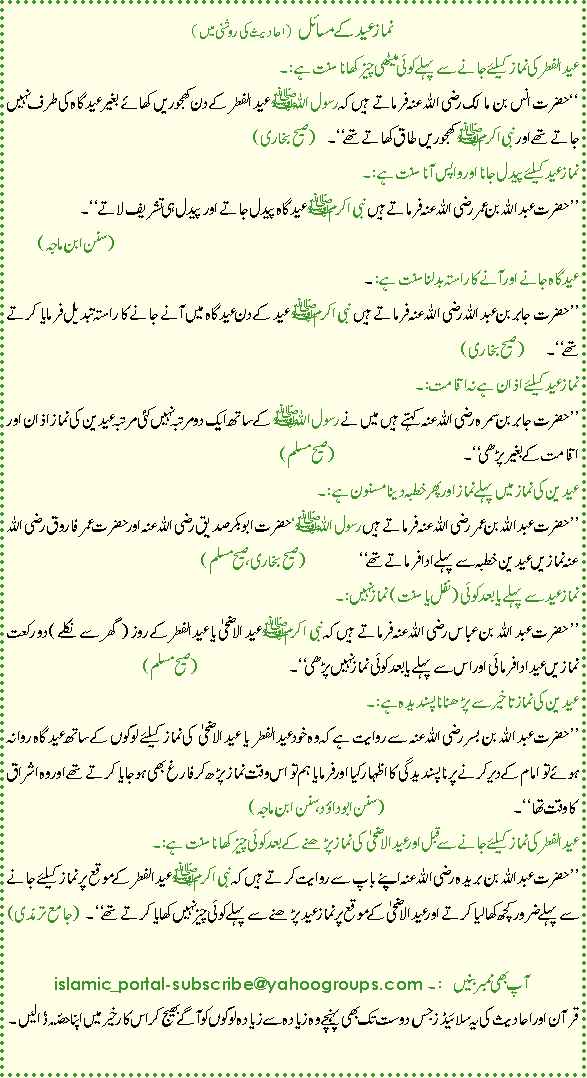 نماز عید کے مسائل (احادیث کی روشنی میں)
عید الفطر کی نماز کیلئے جانے سے پہلے کوئی میٹھی چیز کھانا سنت ہے:۔
’’حضرت انس بن مالک رضی اللہ عنہ فرماتے ہیں کہ رسول اللہ ﷺ عید الفطر کے دن کھجوریں کھائے بغیر عید گاہ کی طرف نہیں
جاتے تھے اور نبی اکرم ﷺ کھجوریں طاق کھاتے تھے‘‘۔ (صحیح بخاری)
نماز عید کیلئے پیدل جانا اور واپس آنا سنت ہے:۔
’’حضرت عبد اللہ بن عمر رضی اللہ عنہ فرماتے ہیں نبی اکرم ﷺ عید گاہ پیدل جاتے اور پیدل ہی تشریف لاتے‘‘۔
(سنن ابن ماجہ)
عید گاہ جانے اور آنے کا راستہ بدلنا سنت ہے:۔
’’حضرت جابر بن عبد اللہ رضی اللہ عنہ فرماتے ہیں نبی اکرم ﷺ عید کے دن عید گاہ میں آنے جانے کا راستہ تبدیل فرمایا کرتے
تھے‘‘۔ (صحیح بخاری)
نماز عید کیلئے اذان ہے نہ اقامت:۔
’’حضرت جابر بن سمرہ رضی اللہ عنہ کہتے ہیں میں نے رسول اللہ ﷺ کے ساتھ ایک دو مرتبہ نہیں کئی مرتبہ عیدین کی نماز اذان اور
اقامت کے بغیر پڑھی‘‘۔ (صحیح مسلم)
عیدین کی نماز میں پہلے نماز اور پھر خطبہ دینا مسنون ہے:۔
’’حضرت عبد اللہ بن عمر رضی اللہ عنہ فرماتے ہیں رسول اللہ ﷺ، حضرت ابوبکر صدیق رضی اللہ عنہ اور حضرت عمر فاروق رضی اللہ
عنہ نمازیں عیدین خطبہ سے پہلے ادا فرماتے تھے‘‘ (صحیح بخاری، صحیح مسلم)
نماز عید سے پہلے یا بعد کوئی (نفل یا سنت) نماز نہیں:۔
’’حضرت عبد اللہ بن عباس رضی اللہ عنہ فرماتے ہیں کہ نبی اکرم ﷺ عید الاضحیٰ یا عید الفطر کے روز (گھر سے نکلے) دو رکعت
نمازیں عید ادا فرمائی اور اس سے پہلے یا بعد کوئی نماز نہیں پڑھی‘‘۔ (صحیح مسلم)
عیدین کی نماز تاخیر سے پڑھنا ناپسندیدہ ہے:۔
’’حضرت عبد اللہ بن بسر رضی اللہ عنہ سے روایت ہے کہ وہ خود عید الفطر یا عید الاضحیٰ کی نماز کیلئے لوگوں کے ساتھ عید گاہ روانہ
ہوئے تو امام کے دیر کرنے پر ناپسندیدگی کا اظہار کیا اور فرمایا ہم تو اس وقت نماز پڑھ کر فارغ بھی ہو جایا کرتے تھے اور وہ اشراق
کا وقت تھا‘‘۔ (سنن ابو داؤد، سنن ابن ماجہ)
عید الفطر کی نماز کیلئے جانے سے قبل اور عید الاضحیٰ کی نماز پڑھنے کے بعد کوئی چیز کھانا سنت ہے:۔
’’حضرت عبد اللہ بن بریدہ رضی اللہ عنہ اپنے باپ سے روایت کرتے ہیں کہ نبی اکرم ﷺ عید الفطر کے موقع پر نماز کیلئے جانے
سے پہلے ضرور کچھ کھا لیا کرتے اور عید الاضحیٰ کے موقع پر نماز عید پڑھنے سے پہلے کوئی چیز نہیں کھایا کرتے تھے‘‘۔ (جامع ترمذی)
آپ بھی ممبر بنیں :۔ islamic_portal-subscribe@yahoogroups.com
قرآن اور احادیث کی یہ سلائیڈز جس دوست تک بھی پہنچے وہ زیادہ سے زیادہ لوگوں کو آگے بھیج کر اس کار خیر میں اپنا حصّہ ڈالیں۔